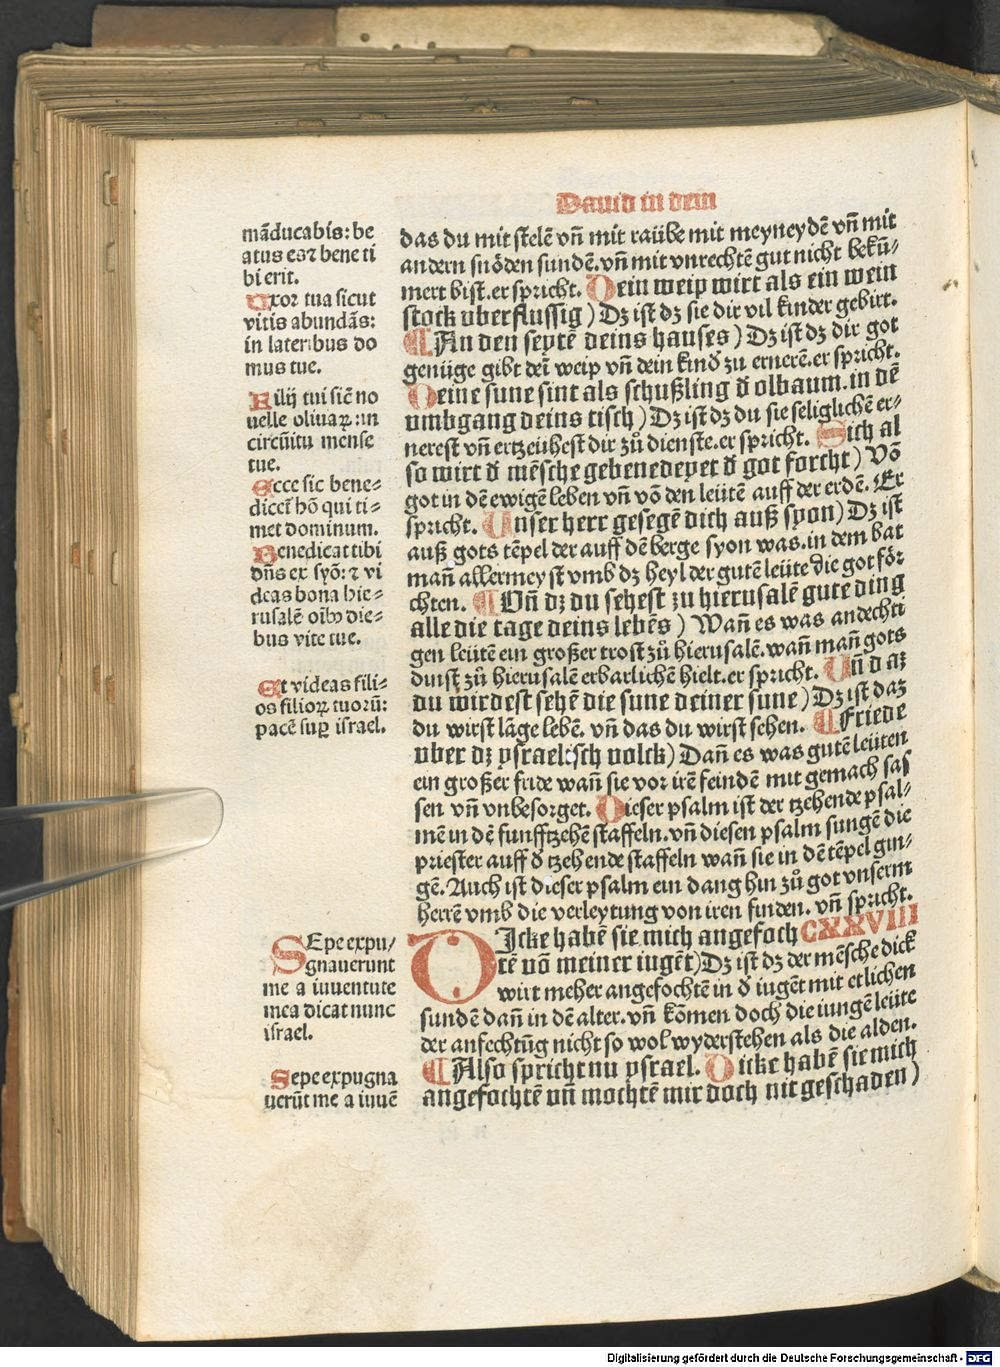 Dauid in dem
mãducabis: be
atus es ⁊ bene ti
bi erit.
Uxor tua sicut
vitis abundãs:
in lateribus do
mus tue.
Filij tui siẽ no
uelle oliuaꝝ: in
circũitu mense
tue.
Ecce sic bene⸗
dicet̃ hõ qui ti⸗
met dominum.
Benedicat tibi
dñs ex syõ: ⁊ vi
deas bona hie⸗
rusalẽ oĩbꝰ die⸗
bus vite tue.
Et videas fili⸗
os filioꝝ tuoꝛũ:
pacẽ suꝑ israel.
SEpe expu/
gnauerunt
me a iuuentute
mea dicat nunc
israel.
Sepe expugna
uerũt me a iuuẽ
das du mit stelẽ vñ mit raübe mit meyneydẽ vñ mit
andern snöden sundẽ. vñ mit vnrechtẽ gut nicht bekũ/
mert bist. er spricht. Dein weip wirt als ein wein
stock uberflussig) Dz ist dz sie dir vil kinder gebirt.
An den seytẽ deins hauses) Dz ist dz dir got
genüge gibt deĩ weip vñ dein kind zu ernerẽ. er spricht.
Deine sune sint als schußling đ olbaum. in dẽ
umbgang deins tisch) Dz ist dz du sie seliglichẽ er⸗
nerest vñ ertzeuhest dir zů dienste. er spricht. Sich al
so wirt đ mẽsche gebenedeyet đ got forcht) Võ
got in dẽ ewigẽ leben vñ võ den leütẽ auff der erdẽ. Er
spricht. Unser herr gesegẽ dich auß syon) Dz ist
auß gots tẽpel der auff dẽ berge syon was. in dem bat
mañ allermeyst vmb dz heyl der gutẽ leüte die got föꝛ
chten. Uñ dz du sehest zu hierusalẽ gute ding
alle die tage deins lebẽs) Wañ es was andechti
gen leütẽ ein großer trost zů hierusalẽ. wañ mañ gots
dinst zů hierusalẽ erbarlichẽ hielt. er spricht. Uñ daz
du wirdest sehẽ die sune deiner sune) Dz ist daz
du wirst lãge lebẽ. vñ das du wirst sehen. Friede
uber dz ysraelisch volck) Dañ es was gutẽ leüten
ein großer fride wañ sie vor irẽ feindẽ mit gemach sas
sen vñ vnbesorget. Dieser psalm ist der tzehende psal⸗
mẽ in dẽ funfftzehẽ staffeln. vñ diesen psalm sungẽ die
priester auff đ tzehende staffeln wañ sie in dẽ tẽpel gin⸗
gẽ. Auch ist dieser psalm ein dang hin zů got vnserm
herrẽ vmb die verleytung von iren finden. vñ spricht.
DIcke habẽ sie mich angefoch CXXVIII
tẽ võ meiner iugẽt) Dz ist dz der mẽsche dick
wirt meher angefochtẽ in đ iugẽt mit etlichen
sundẽ dañ in dẽ alter. vñ kõmen doch die iungẽ leüte
der anfechtũg nicht so wol wyderstehen als die alden.
Also spricht nu ysrael. Dicke habẽ sie mich
angefochtẽ vñ mochtẽ mir doch nit geschaden)
Digitalisierung gefördert durch die Deutsche Forschungsgemeinschaft - DFG